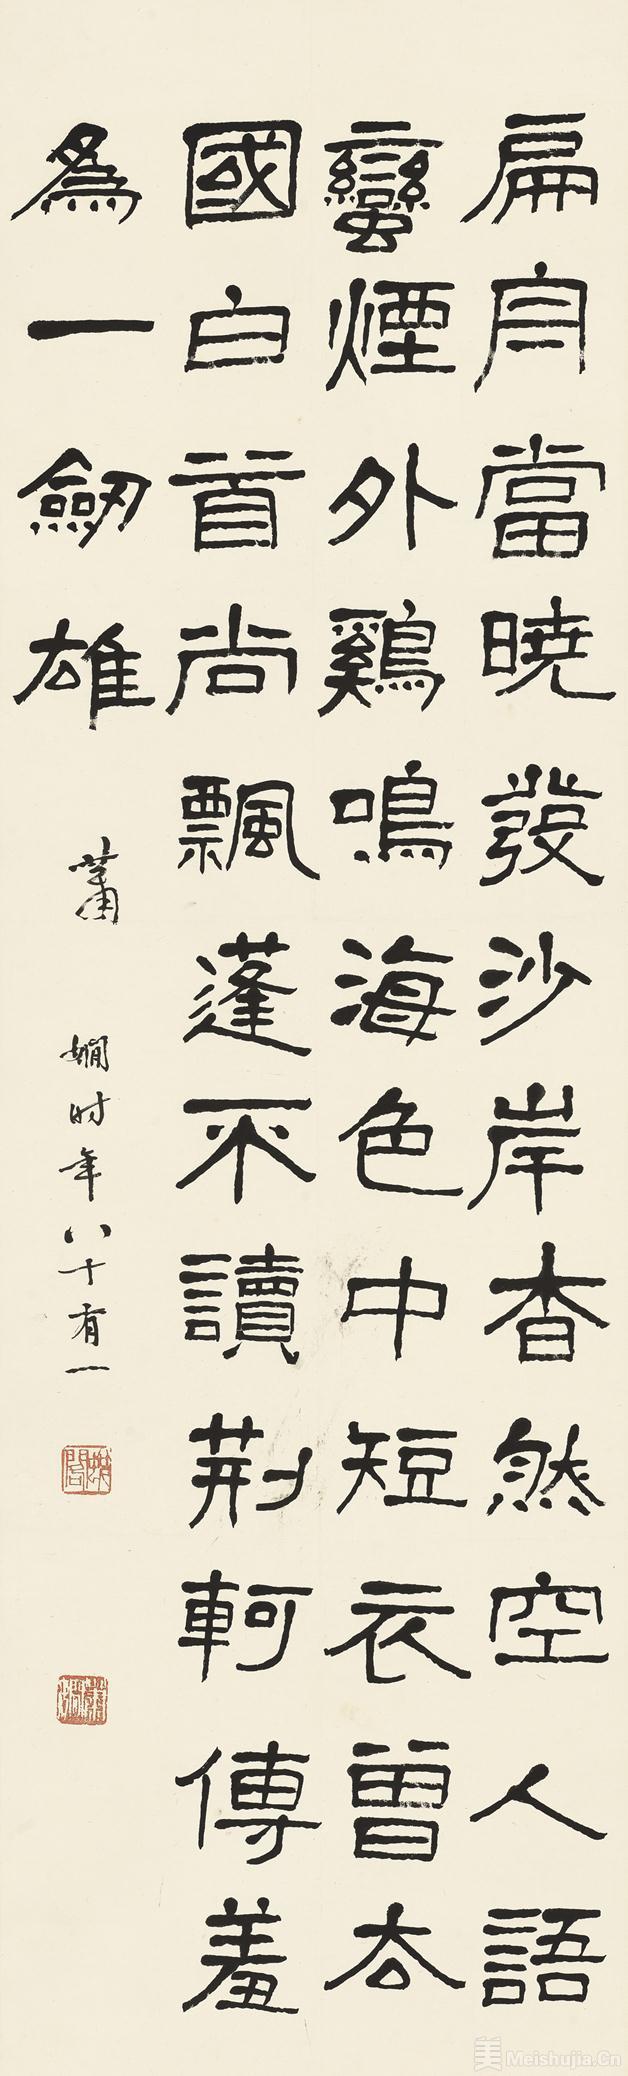 扁舟當曉發沙岸杳然空人語
蠻煙外鷄鳴海色中短衣曾去
國白首尚飄蓬不讀荊軻傳羞
爲一劒雄
蕭嫺时年八十有一
美 Meishujia.Cn